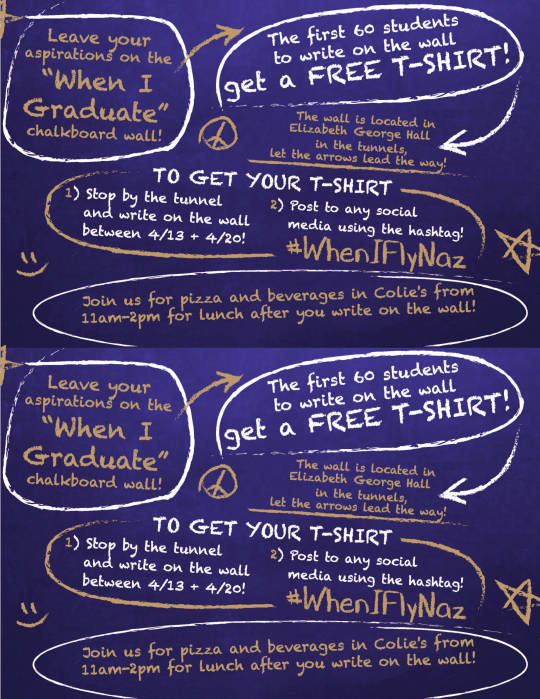 Leave your
aspirations on the
"When I
Graduate"
chalkboard wall!
The first 60 students
to write on the wall
get a FREE T-SHIRT!
The wall is located in
Elizabeth George Hall
in the tunnels,
let the arrows lead the way!
TO GET YOUR T-SHIRT
1) Stop by the tunnel
and write on the wall
between 4/13 + 4/20!
2) Post to any social
media using the hashtag!
#WhenIFlyNaz
Join us for pizza and beverages in Colie's from
11am-2pm for lunch after you write on the wall!
Leave your
aspirations on the
"When I
Graduate"
chalkboard wall!
The first 60 students
to write on the wall
get a FREE T-SHIRT!
The wall is located in
Elizabeth George Hall
in the tunnels,
let the arrows lead the way!
TO GET YOUR T-SHIRT
1) Stop by the tunnel
and write on the wall
between 4/13 + 4/20!
2) Post to any social
media using the hashtag!
#WhenIFlyNaz
Join us for pizza and beverages in Colie's from
11am-2pm for lunch after you write on the wall!